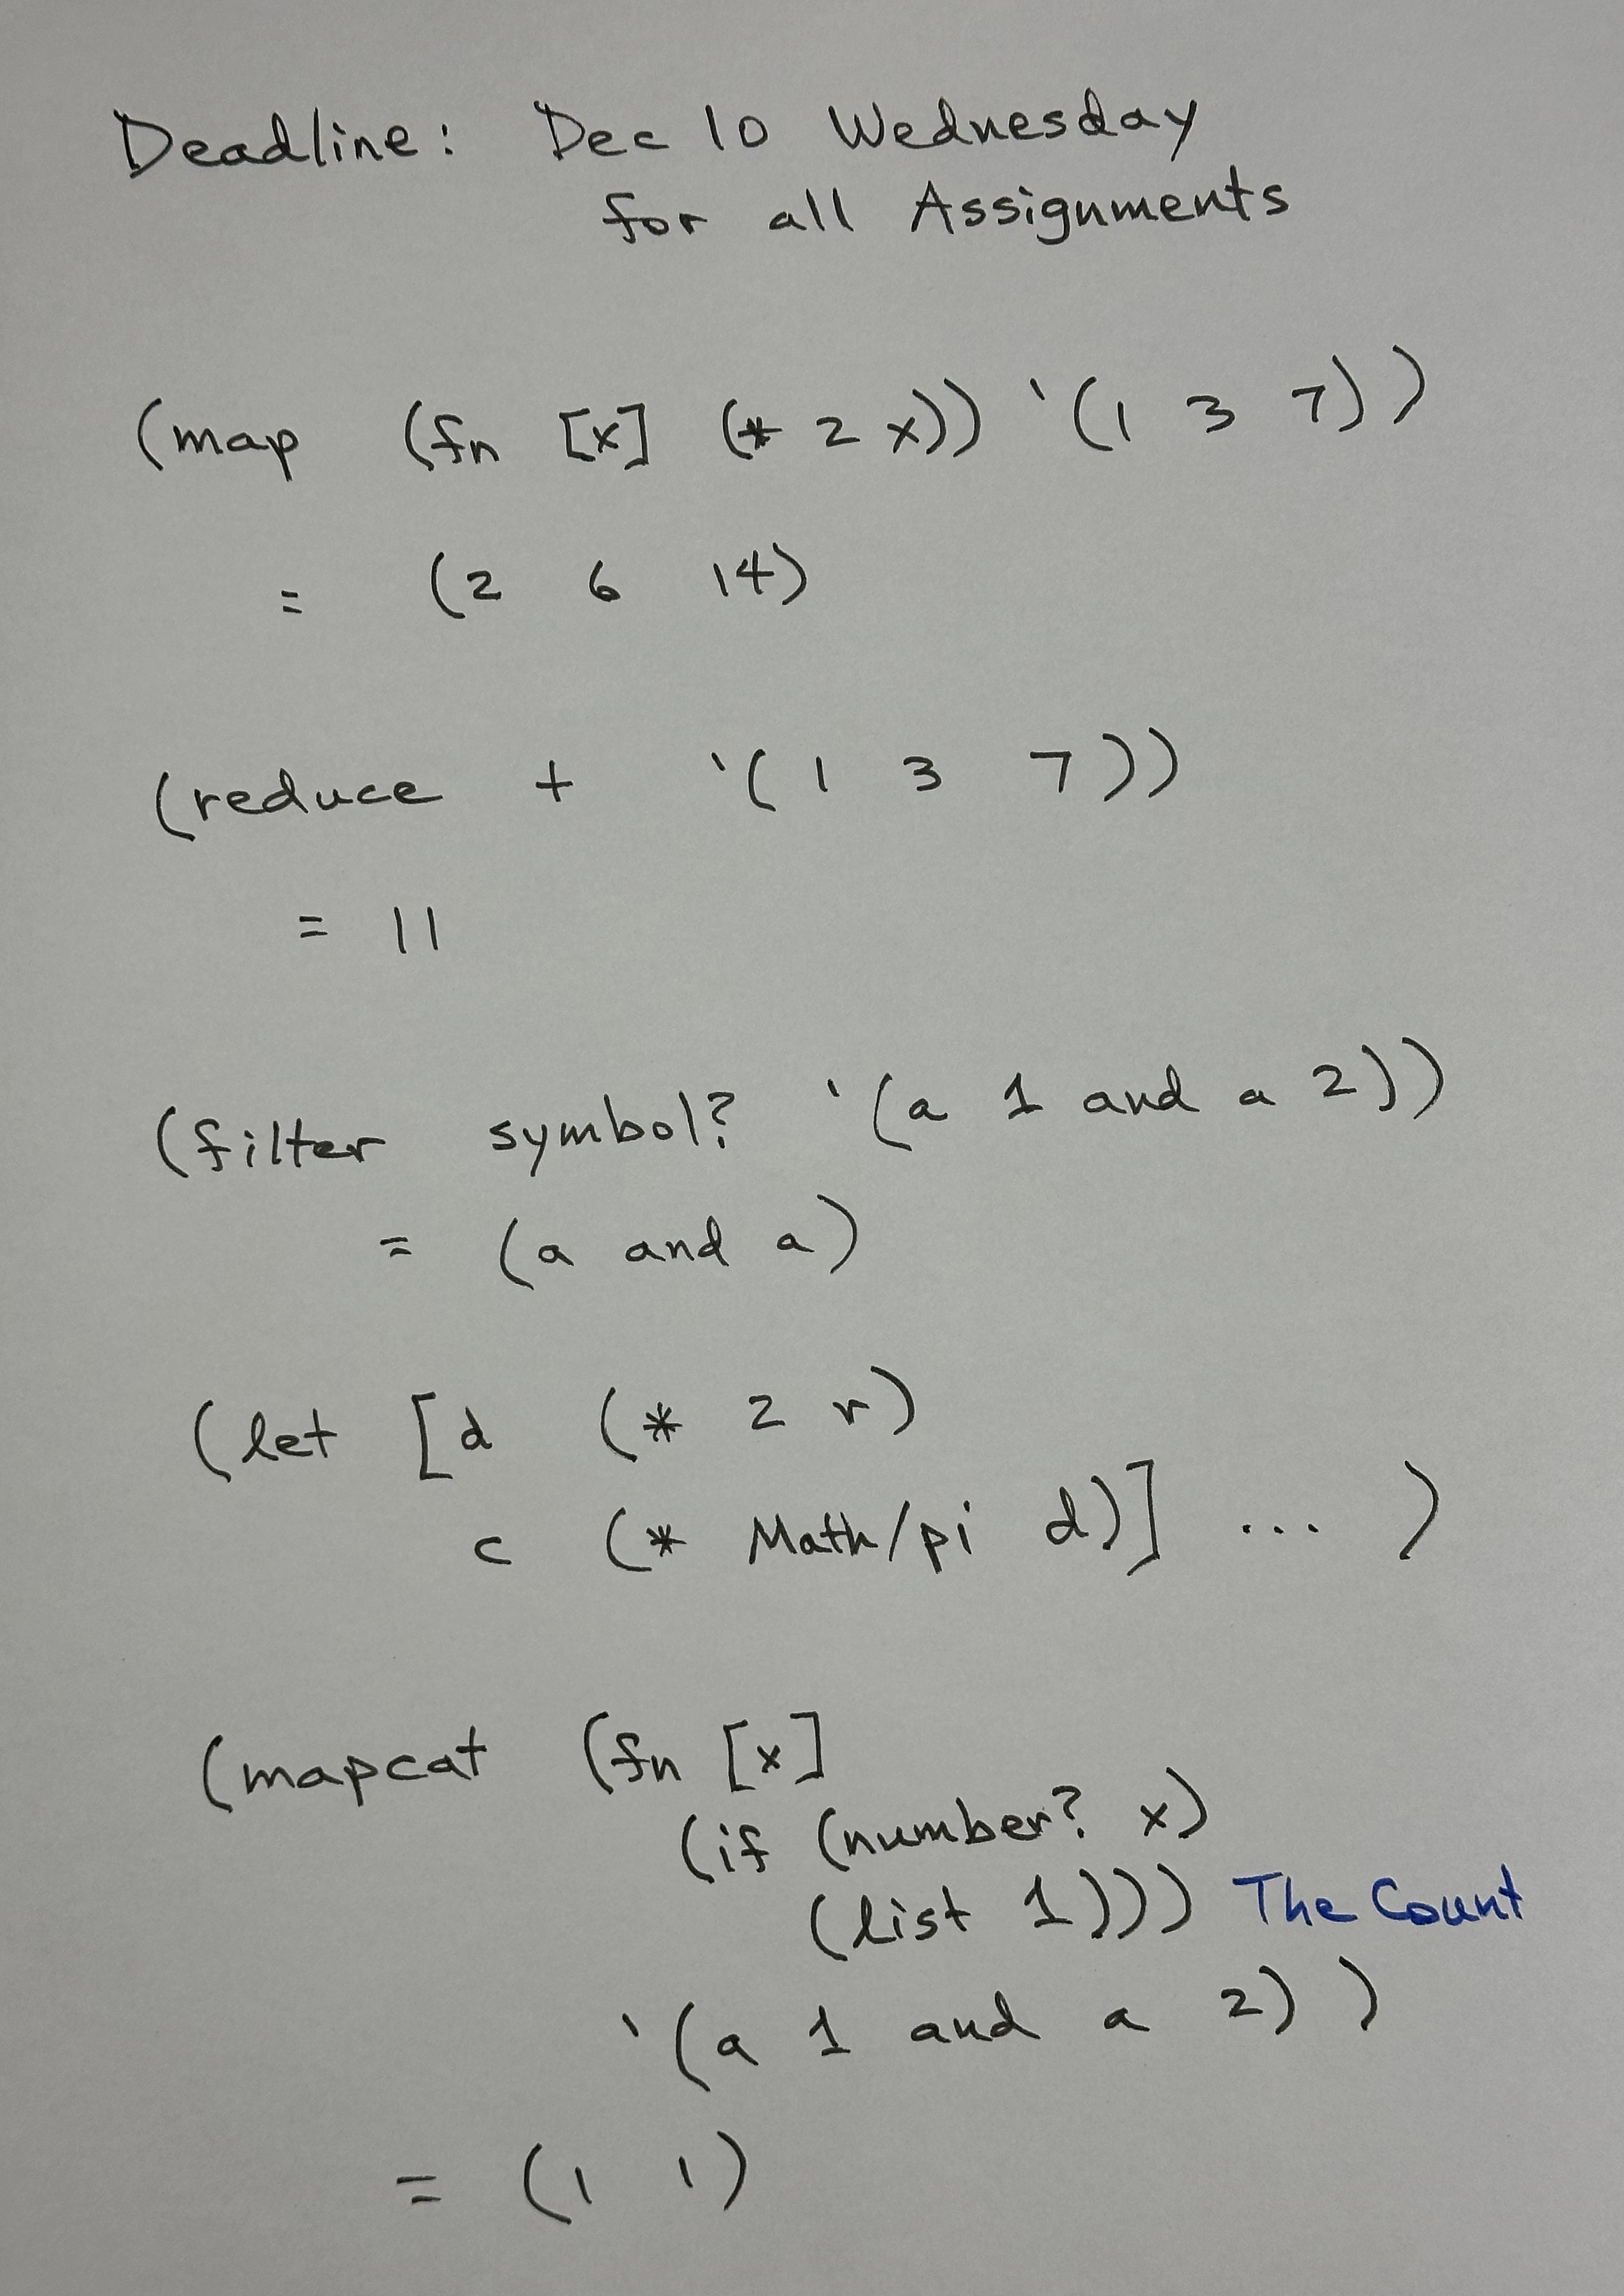 Deadline: Dec 10 Wednesday
for all Assignments
(map (fn [x] (* 2 x)) '(1 3 7))
= (2 6 14)
(reduce + '(1 3 7))
= 11
(filter symbol? '(a 1 and a 2))
= (a and a)
(let [d (* 2 r)
c (* Math/pi d)] ... )
(mapcat (fn [x]
(if (number? x)
(list 1))) The Count
'(a 1 and a 2) )
= (1 1)